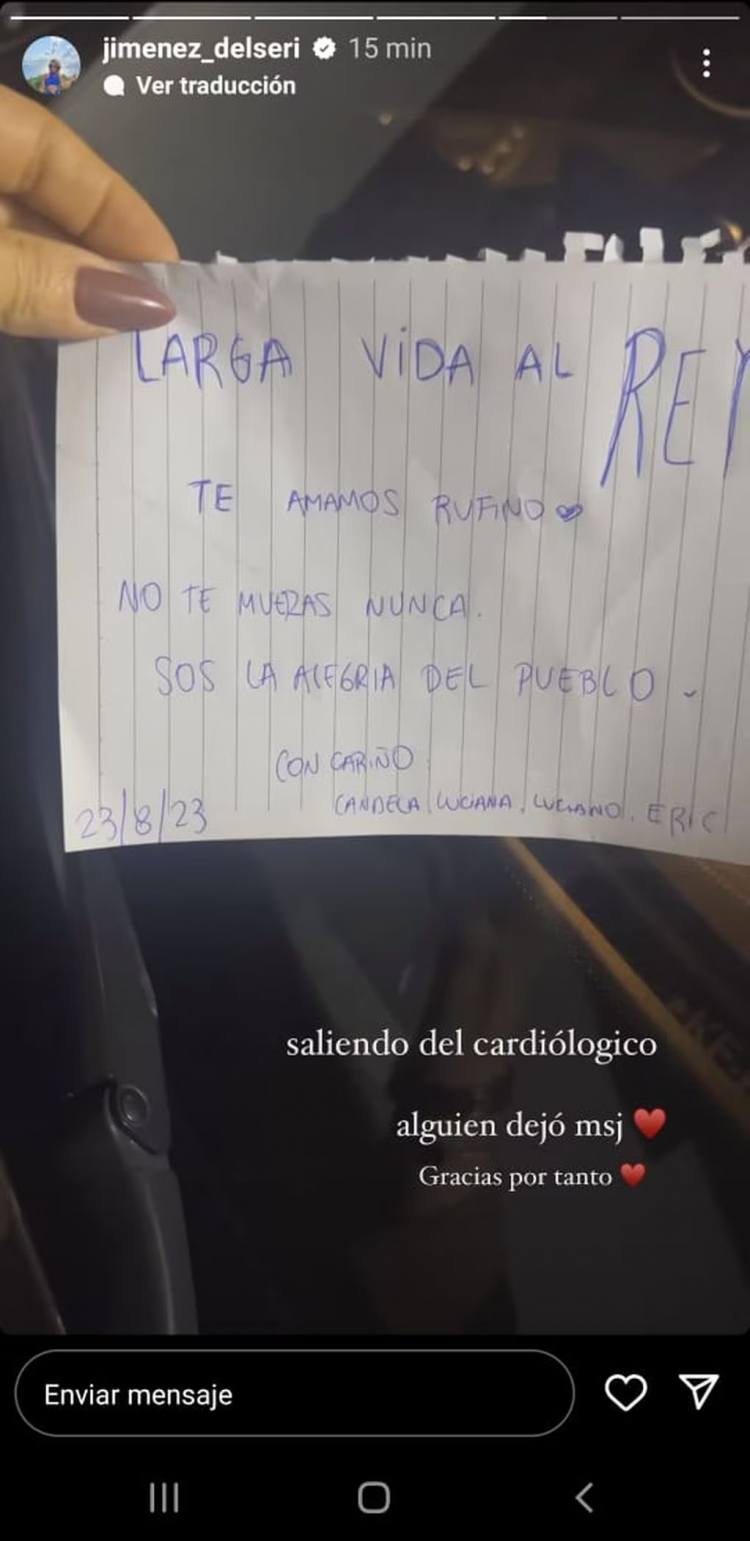 jimenez_delseri 15 min
Ver traducción
LARGA VIDA AL REY
TE AMAMOS RUFINO
NO TE MUERAS NUNCA.
SOS LA ALEGRIA DEL PUEBLO
CON CARIÑO
23/8/23
CANDELA, LUCIANA, LUCIANO, ERIC
saliendo del cardiólogico
alguien dejó msj ♥
Gracias por tanto ♥
Enviar mensaje